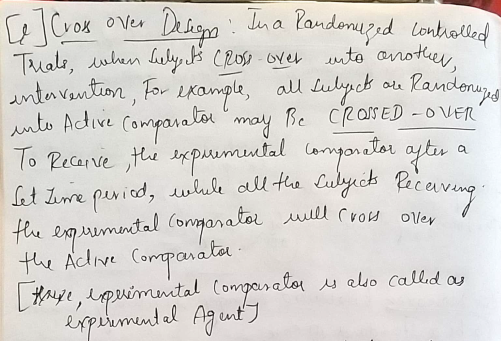 [e] Cross over Design : In a Randomized Controlled
Trials, when Subjects CROSS-over into another,
intervention, For example, all Subjects are Randomized
into Active Comparator may Be CROSSED-OVER
To Receive, the experimental comparator after a
Set Time period, while all the Subjects Receiving.
the experimental Comparator will Cross over
the Active Comparator.
[experimental Comparator is also called as
experimental Agent]